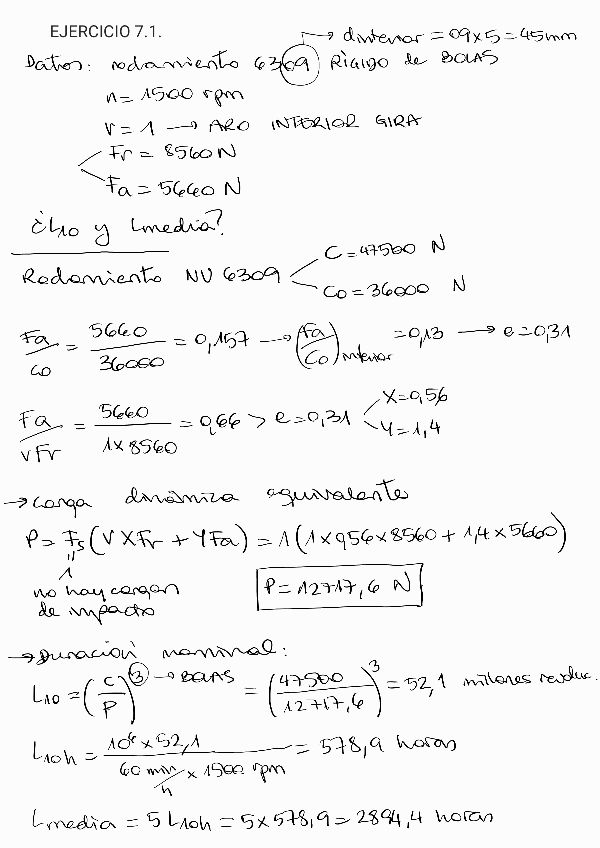 EJERCICIO 7.1.
→ dinterior = 09x5 = 45mm
Datos: rodamiento 6309 RÍGIDO de BOLAS
n = 1500 rpm
V = 1 → ARO INTERIOR GIRA
Fr = 8560 N
Fa = 5660 N
¿L10 y Lmedia?
Rodamiento NU 6309
C = 47500 N
Co = 36000 N
Fa/Co = 5660/36000 = 0,157 → (Fa/Co)inferior = 0,13 → e = 0,31
Fa/VFr = 5660/1x8560 = 0,66 > e = 0,31
X = 0,56
Y = 1,4
→ Carga dinámica equivalente
P = Fs (V X Fr + Y Fa) = 1 (1x0,56x8560 + 1,4x5660)
1
no hay cargas
de impacto
P = 12717,6 N
→ Duración nominal:
L10 = (C/P)^3 → BOLAS = (47500/12717,6)^3 = 52,1 millones revoluc.
L10h = 10^6 x 52,1/60 min/h x 1500 rpm = 578,9 horas
Lmedia = 5 L10h = 5x578,9 = 2894,4 horas